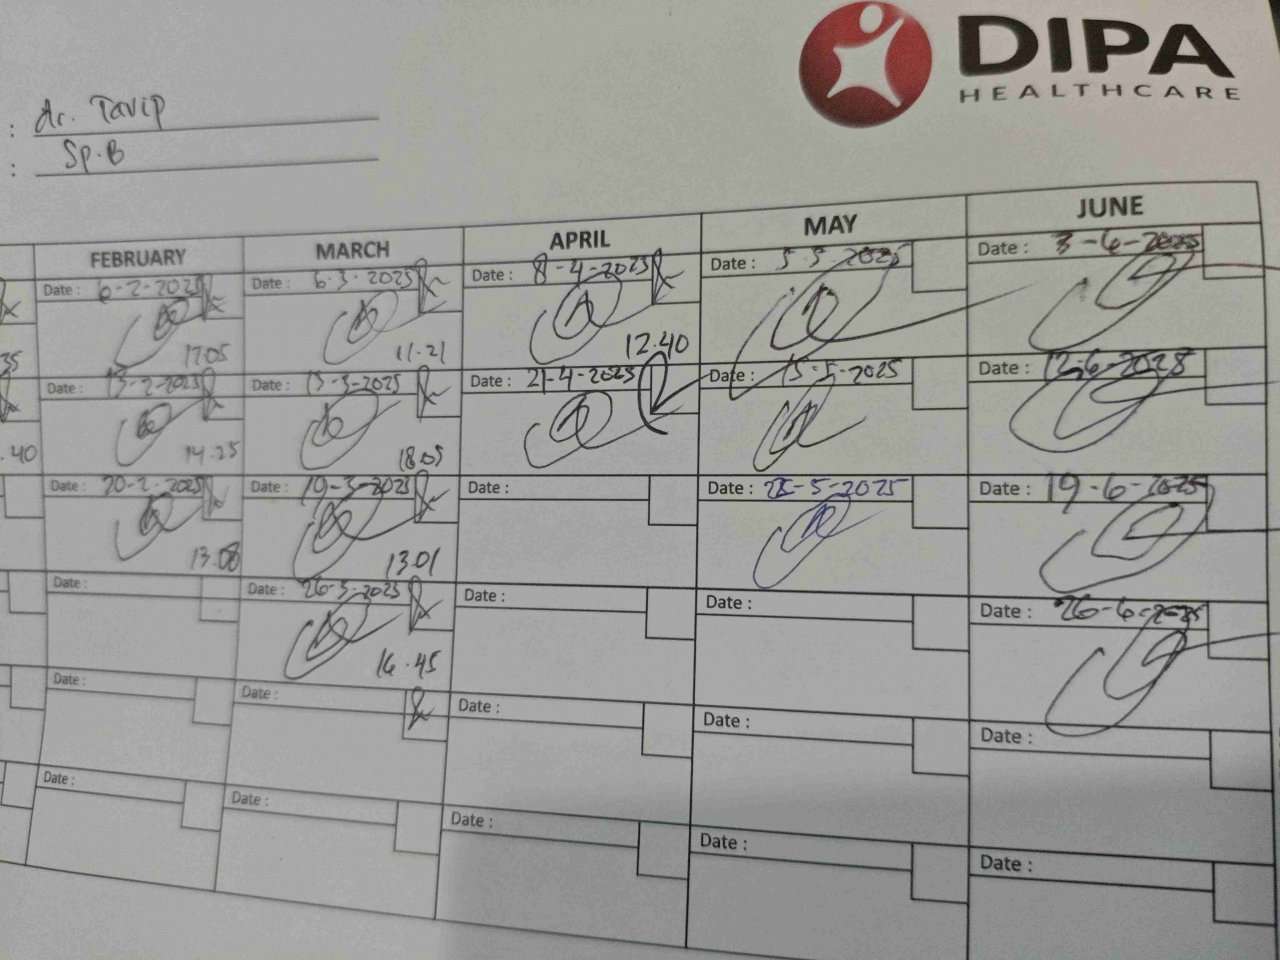 DIPA
HEALTHCARE
: dr. Tavip
: Sp.B
FEBRUARY MARCH APRIL MAY JUNE
Date : 6-2-2025 Date : 6-3-2025 Date : 8-4-2025 Date : 5-5-2025 Date : 3-6-2025
35 17.05 11.21 12.40
Date : 13-2-2025 Date : 13-3-2025 Date : 21-4-2025 Date : 15-5-2025 Date : 12-6-2025
.40 14.25 18.05
Date : 20-2-2025 Date : 19-3-2025 Date : Date : -5-2025 Date : 19-6-2025
13.08 13.01
Date : Date : 26-3-2025 Date : Date : Date : 26-6-2025
16.45
Date : Date : Date : Date : Date :
Date : Date : Date : Date : Date :